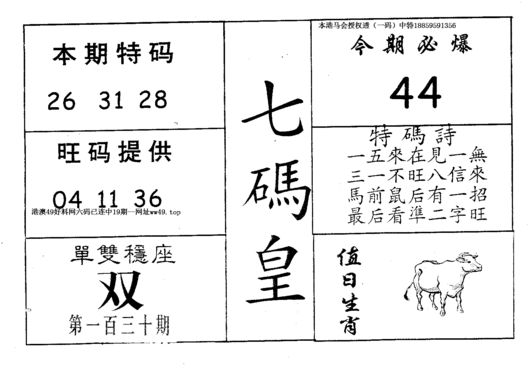 本期特码
26 31 28
旺码提供
04 11 36
港澳49好料网六码已连中19期--网址ww49.top
單雙穩座
双
第一百三十期
七碼皇
本港马会授权透（一码）中特18859591356
今期必爆
44
特碼詩
一五來在見一無
三一不旺八信來
馬前鼠后有一招
最后看準二字旺
值日生肖